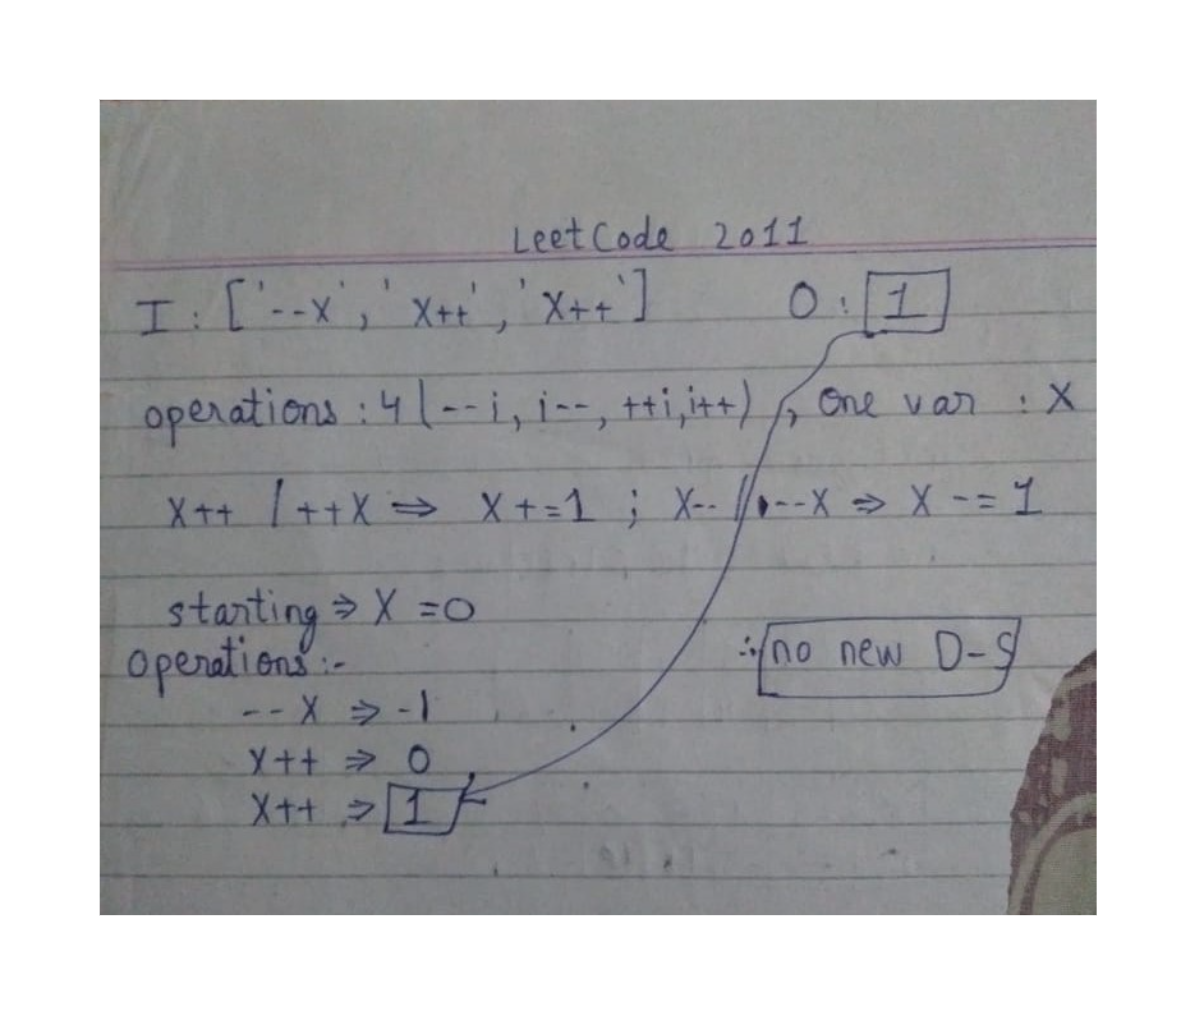 LeetCode 2011
I : ['--X', 'X++', 'X++'] O : 1
operations : 4 (--i, i--, ++i, i++) , One var : X
X++ / ++X ⇒ X+=1 ; X-- / --X ⇒ X -= 1
starting ⇒ X = 0
operations :-
∴ no new D-S
--X ⇒ -1
X++ ⇒ 0
X++ ⇒ 1